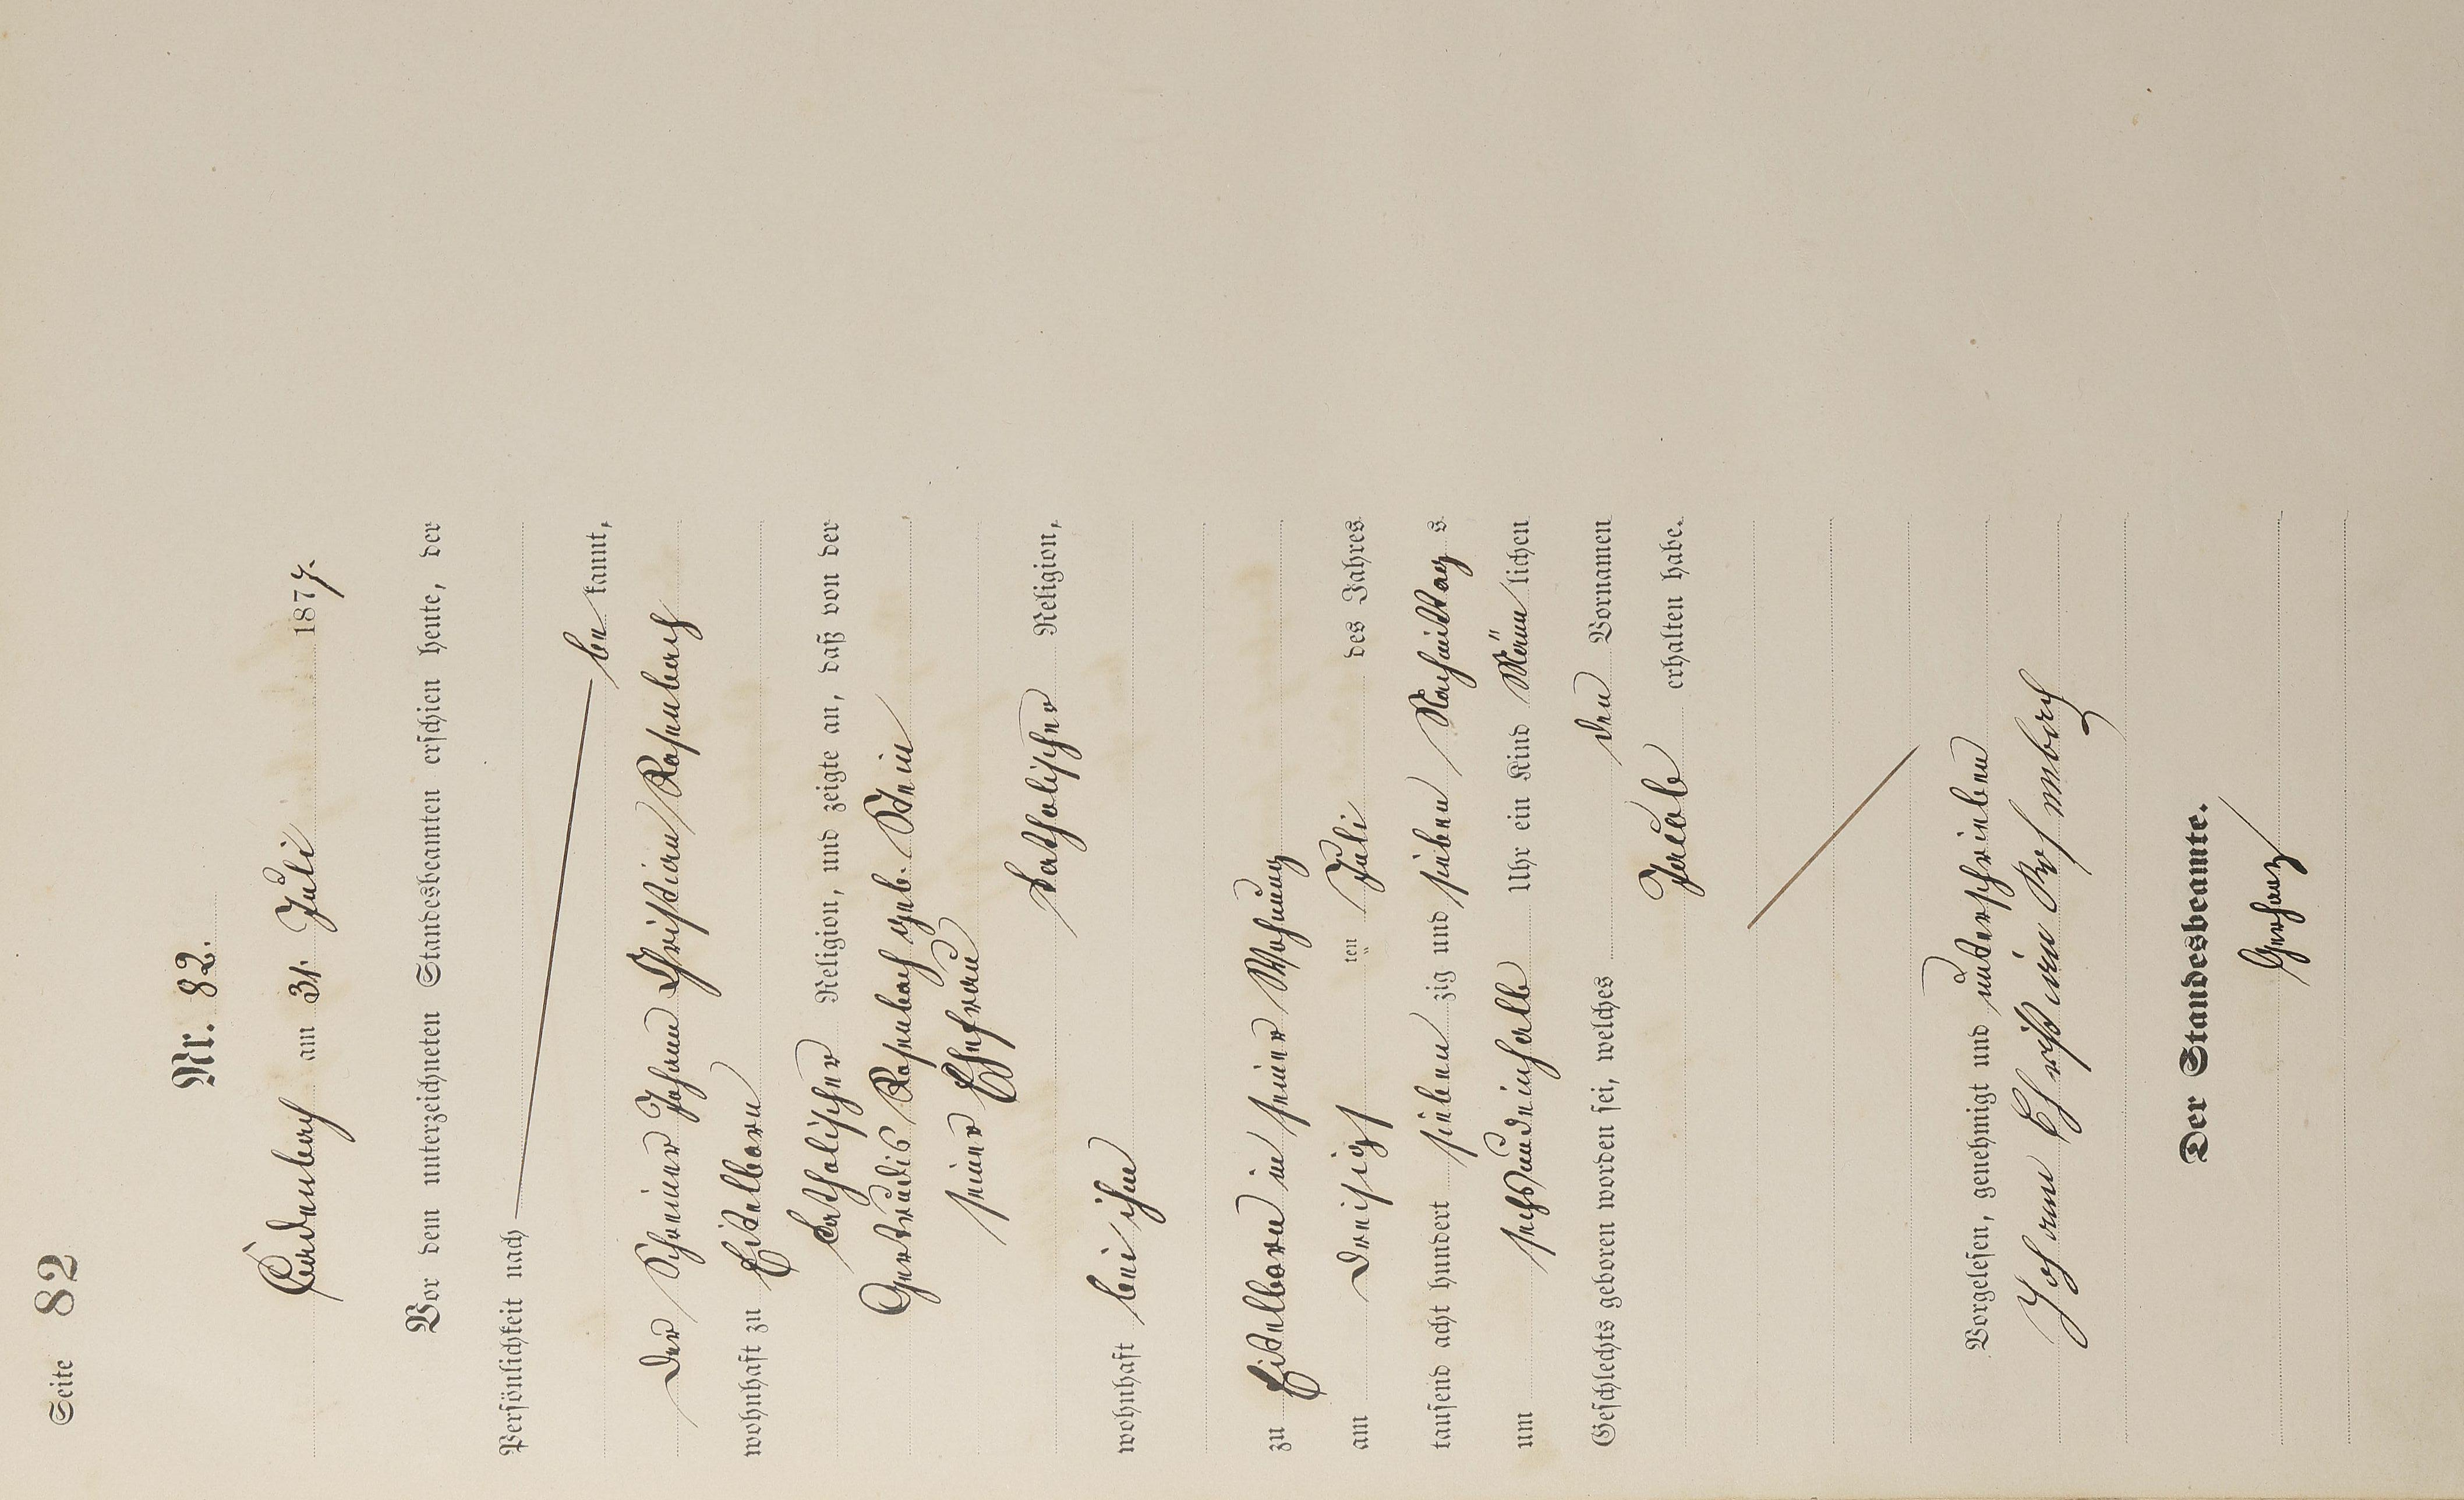 Seite 82
Nr. 82.
Cadenbach am 31. Juli 1877.
Vor dem unterzeichneten Standesbeamten erschien heute, der
Persönlichkeit nach
be kannt,
der Schreiner Johann Christian Rosenbach
wohnhaft zu Eitelborn
katholischer Religion, und zeigte an, daß von der
Gertrudis Rosenbach geb. Stein
seiner Ehefrau
katholischer Religion,
wohnhaft bei ihm
zu Eitelborn in seiner Wohnung
am dreisigst ten Juli des Jahres
tausend acht hundert sieben zig und sieben Nachmittag s
um sechsundeinhalb Uhr ein Kind Männ lichen
Geschlechts geboren worden sei, welches den Vornamen
Jacob erhalten habe.
Vorgelesen, genehmigt und unterschrieben
Johann Christian Rosenbach
Der Standesbeamte.